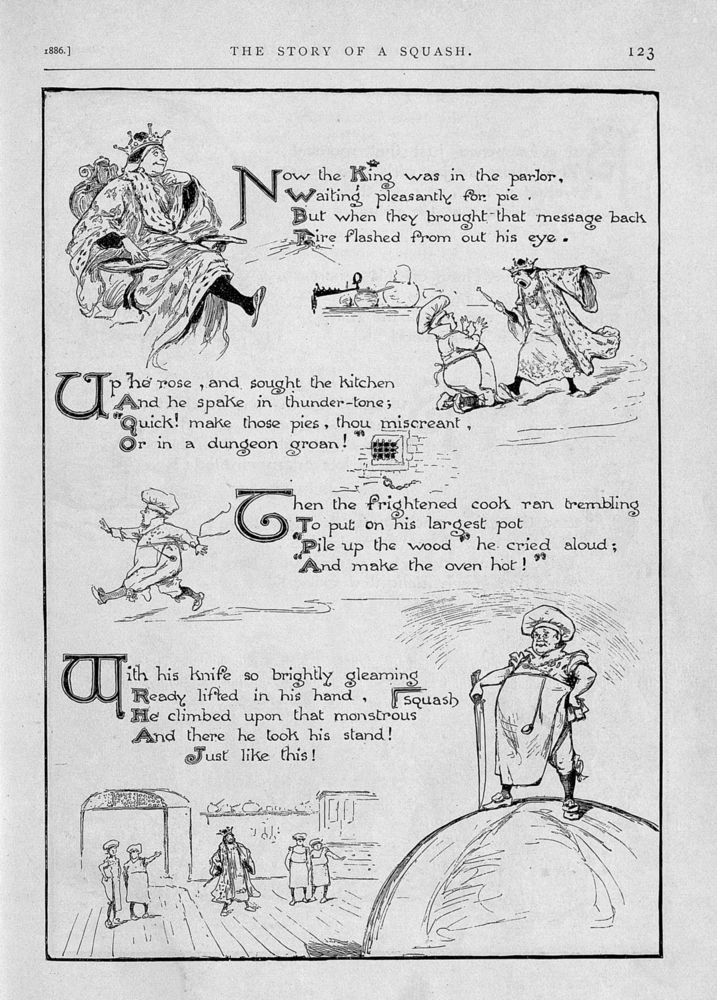 1886.] THE STORY OF A SQUASH. 123
Now the King was in the parlor,
Waiting pleasantly for pie.
But when they brought that message back
Fire flashed from out his eye.
Up he rose, and sought the kitchen
And he spake in thunder-tone;
"Quick! make those pies, thou miscreant,
Or in a dungeon groan!"
Then the frightened cook ran trembling
To put on his largest pot
"Pile up the wood" he cried aloud;
"And make the oven hot!"
With his knife so brightly gleaming
Ready lifted in his hand,
He climbed upon that monstrous squash
And there he took his stand!
Just like this!